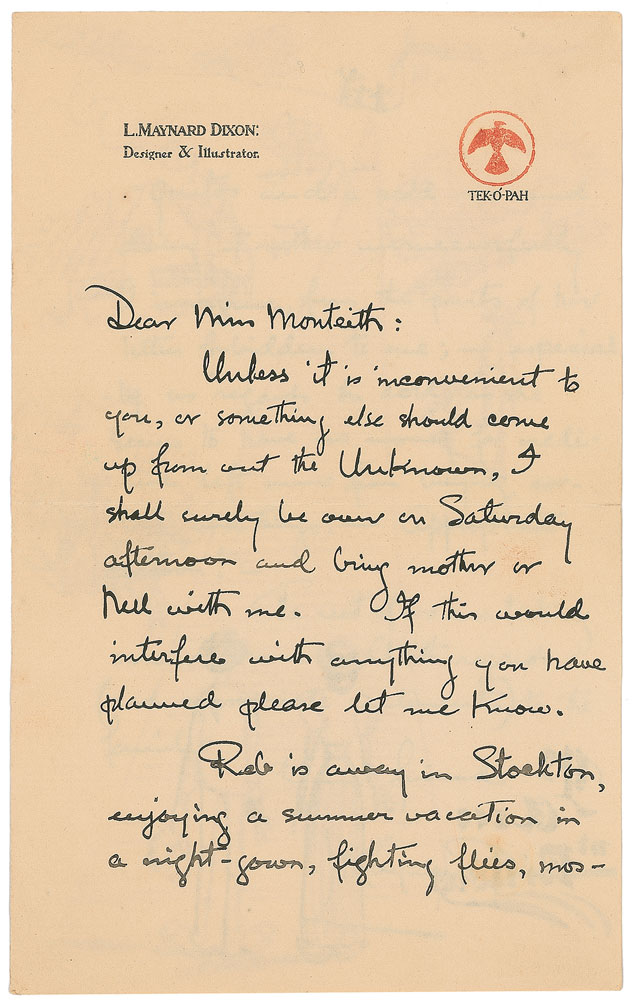 L. MAYNARD DIXON:
Designer & Illustrator.
TEK-Ó-PAH
Dear Miss Monteith:
Unless it is inconvenient to
you, or something else should come
up from out the Unknown, I
shall surely be over on Saturday
afternoon and bring mother or
Nell with me. If this would
interfere with anything you have
planned please let me know.
Reb is away in Stockton,
enjoying a summer vacation in
a night-gown, fighting flies, mos-